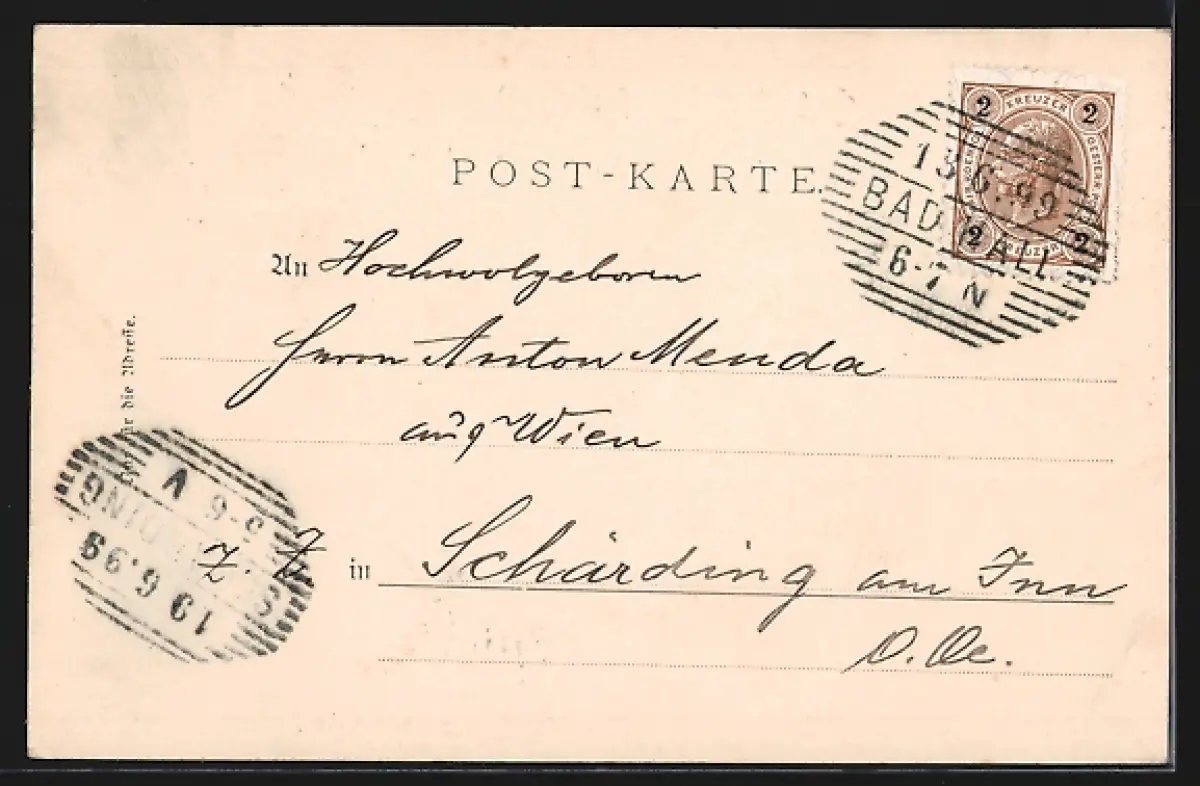 POST-KARTE.
2 KREUZER 2
2 KREUZER 2
13.6.99
BAD HALL
6-7 N
An Hochwolgeboren
Herrn Anton Menda
aus Wien
z. Z. in Schärding am Inn
O. Oe.
Nur für die Adresse.
SCHÄRDING
19.6.99
5-6 V